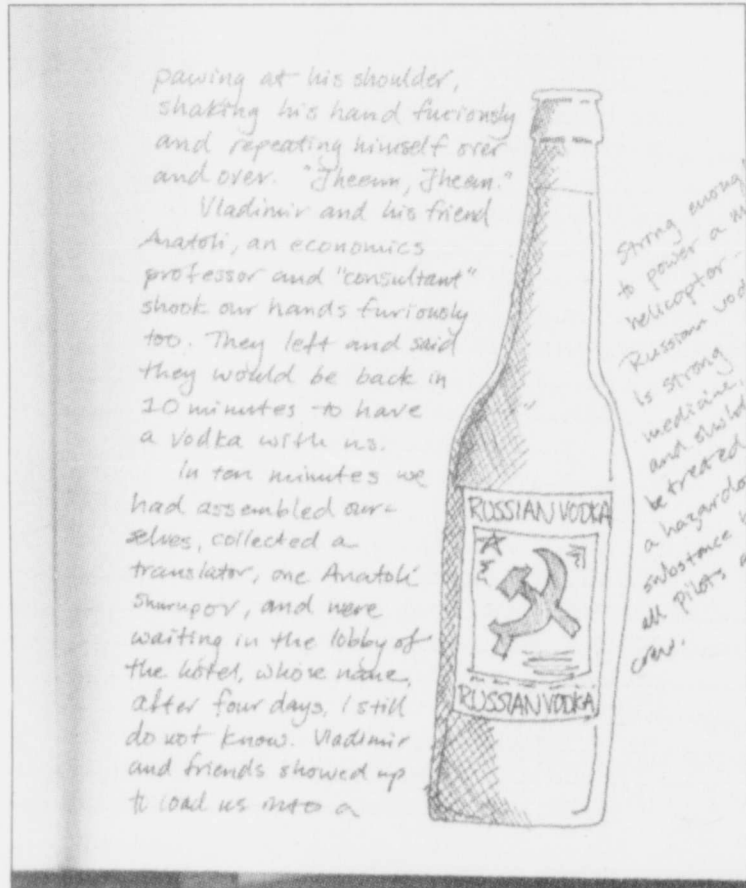 pawing at his shoulder,
shaking his hand furiously
and repeating himself over
and over. "Jheem, Jheem."
Vladimir and his friend
Anatoli, an economics
professor and "consultant"
shook our hands furiously
too. They left and said
they would be back in
10 minutes to have
a vodka with us.
In ten minutes we
had assembled our-
selves, collected a
translator, one Anatoli
and were
waiting in the lobby of
the hotel, whose name,
after four days, I still
do not know. Vladimir
and friends showed up
to load us into a
RUSSIAN VODKA
RUSSIAN VODKA
Strong enough
to power a
helicoptor-
Russian
is strong
medicine,
and should
be treated
a
substance
all pilots
crew.